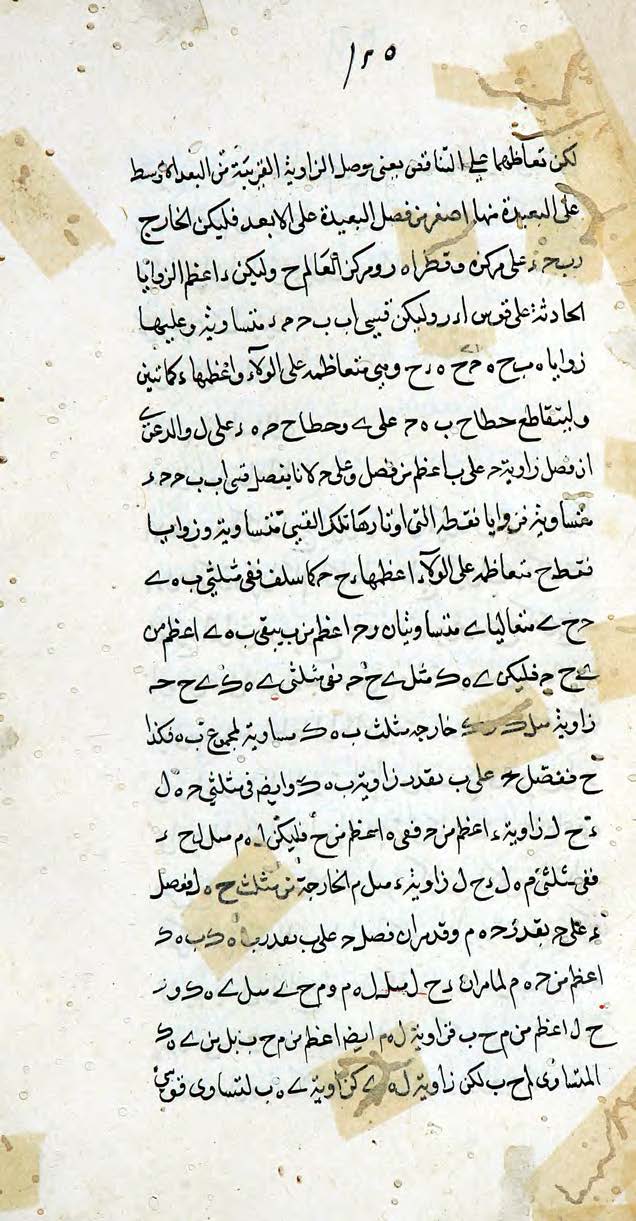 ١٢٥
لكن تعاظمها على التناقص يعنى بوصل الزاوية القريبة من البعد الاوسط
على البعيدة منها اصغر من فصل البعيدة على الابعد فليكن الخارج
ر ب ح ء على مركز ه وقطر ا ه ر ومركز العالم ح وليكن ء اعظم الزوايا
الحادثة على قوس ا ء ر وليكن قسى ا ب ب ح ح ء متساوية وعليها
زوايا ه ب ح ه ح ح ه ء ح وهى متعاظمة على الولاء واعظمها ء كما تبين
وليتقاطع خطا ح ب ه ح على ى وخطا ح ح ه ء على ل والدعوى
ان فصل زاوية ح على ب اعظم من فصل ء على ح لانا نفصل قسى ا ب ب ح ح ء
متساوية فزوايا نقطة ه التى اوتارها تلك القسى متساوية وزوايا
نقطة ح متعاظمة على الولاء اعظمها ء ح ح كما سلف ففى مثلثى ب ه ى
ح ح ى متقابلتا ى متساويتان و ح اعظم من ب يبقى ب ه ى اعظم من
ى ح ح فليكن ى ه ك مثل ى ح ح ففى مثلثى ى ه ك ى ح ح
زاوية خارجه مثلث ب ه ك مساوية لمجموع ب ه ك
ح ففضل ح على ب بقدر زاوية ب ه ك وايضا فى مثلثى ح ه ل
ء ح ل زاوية ء اعظم من ح ففى ه اعظم من ح فليكن ل ه م مثل ل ح ء
ففى مثلثى م ه ل ء ح ل زاوية ء مثل م الخارجة من مثلث ح ه م ففصل
ء على ح بقدر ح ه م وقد مر ان فصل ح على ب بقدر ب ه ك و ب ه ك
اعظم من ح ه م لما مر ان ء ح ل مثل ل ه م و ح ح ى مثل ى ه ك و
ح ل اعظم من ح ح ب فزاوية ل ه م ايضا اعظم من ح ح ب بل من ى ه ك
المتساوى ل ح ح ب لكن زاوية ل ه ى كزاوية ى ه ب لتساوى قوسى